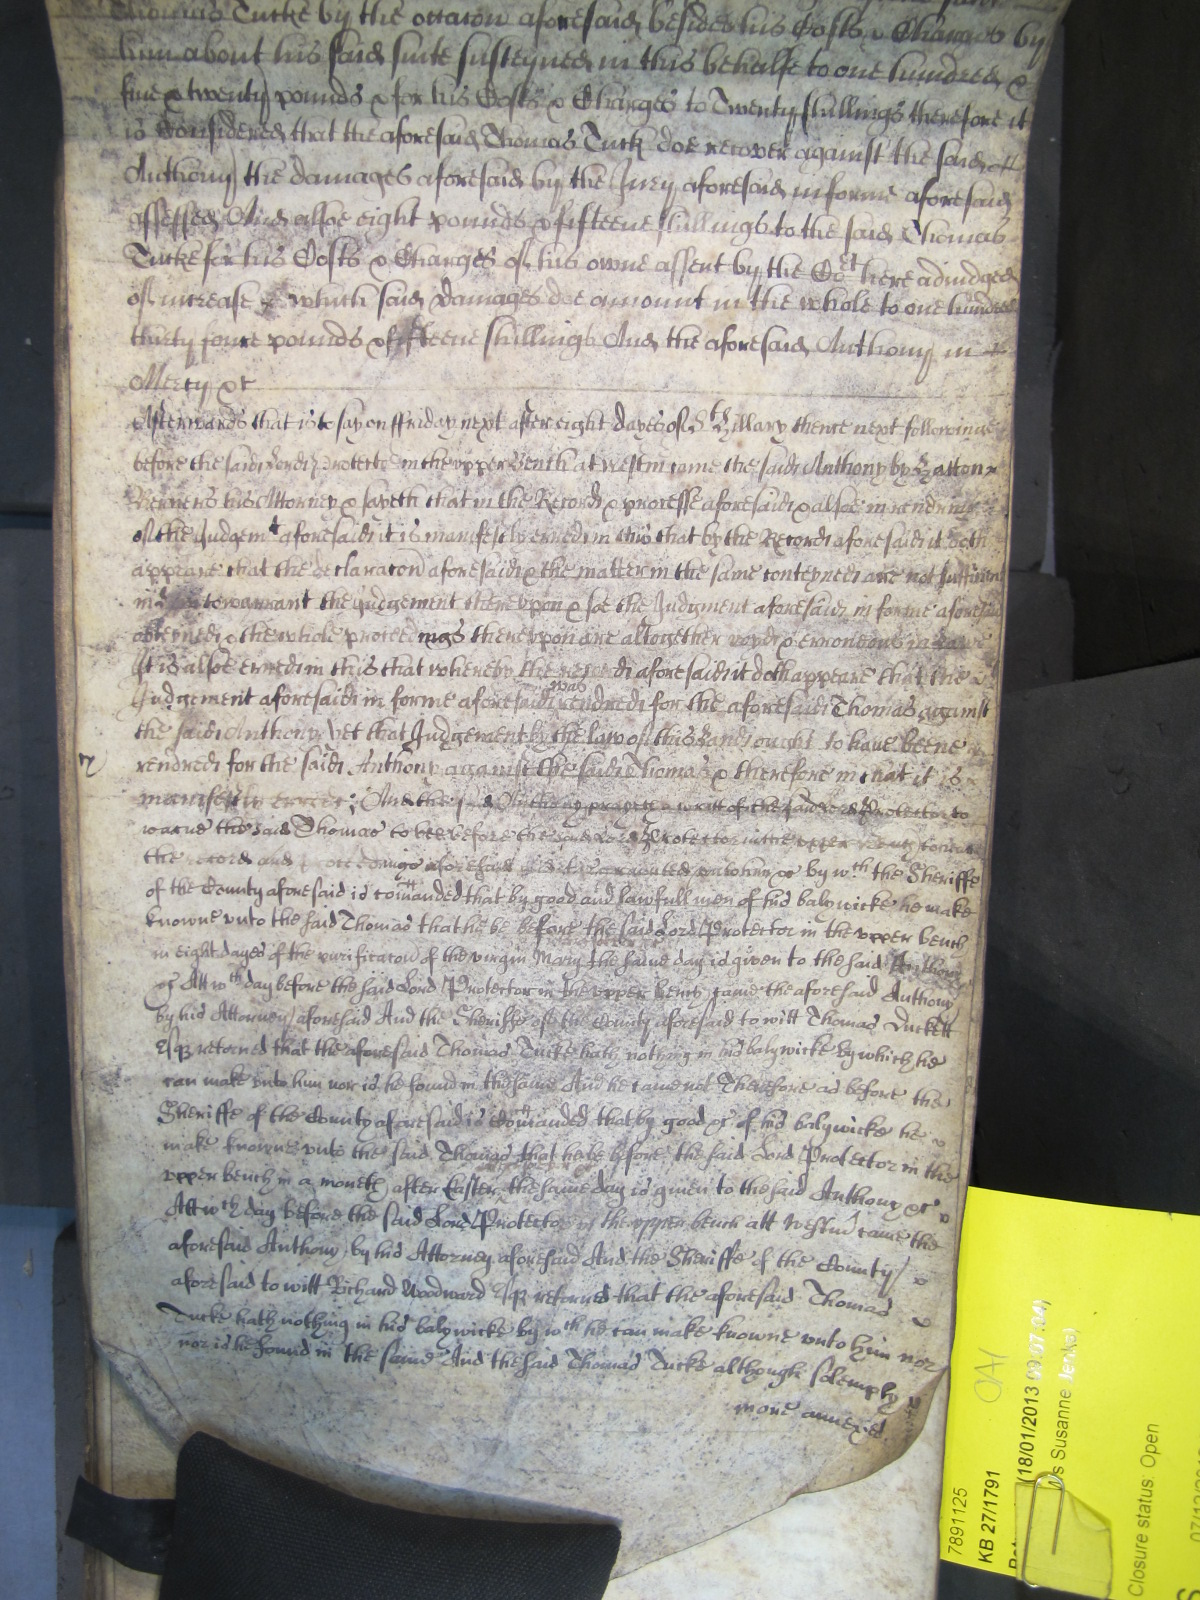 Thomas Tucke by the occacon aforesaid besides his Costs & Charges by
him about his said suite susteyned in this behalfe to one hundred &
five & twenty pounds & for his Costs & Charges to Twenty shillings therefore it
is Considered that the aforesaid Thomas Tuck doe recover against the said
Anthony the damages aforesaid by the Jury aforesaid in forme aforesaid
assessed And alsoe eight pounds & fifteene shillings to the said Thomas
Tucke for his Costs & Charges of his owne assent by the Cot here adiudged
of increase which said Damages doe amount in the whole to one hundred
thirty foure pounds & fifteene shillings And the aforesaid Anthony in
Mercy &c
Afterwards that is to say on ffriday next after eight dayes of St Hillary thence next followinge
before the said Lord Protector in the upper Bench at Westm came the said Anthony by
his Attorney & sayeth that in the Record & processe aforesaid & alsoe in rendring
of the Judgemt aforesaid it is manifestly erred in this that by the Record aforesaid it doth
appeare that the declaracon aforesaid & the matter in the same conteyned are not sufficient
to warrant the Judgement thereupon & soe the Judgment aforesaid in forme aforesaid
obteyned & the whole proceedings thereupon are altogether voyd & erronious in Lawe
It is alsoe erred in this that whereby the record aforesaid it doth appeare that the
Judgement aforesaid in forme aforesaid was rendred for the aforesaid Thomas against
the said Anthony yet that Judgement by the law of this Land ought to have beene
rendred for the said Anthony against the said Thomas & therefore in that it is
manifestly erred; And the said Anthony prayeth a writt of the said Lord Protector to
warne the said Thomas to bee before the said Lord Protector in the upper bench to heare
the record and proceedings aforesaid & it is graunted unto him &c by wth the Sheriffe
of the County aforesaid is comanded that by good and lawfull men of his balywicke he make
knowne unto the said Thomas that he be before the said Lord Protector in the upper bench
in eight dayes of the purificacon of the virgin Mary the same day is given to the said Anthony
&c Att wth day before the said Lord Protector in the upper bench came the aforesaid Anthony
by his Attorney aforesaid And the Sheriffe of the County aforesaid to witt Thomas Duckett
Esqr retorned that the aforesaid Thomas Tucke hath nothing in his balywicke by which he
can make unto him nor is he found in the same And he came not Therefore as before the
Sheriffe of the County aforesaid is Comanded that by good &c of his balywicke he
make knowne unto the said Thomas that he be before the said Lord Protector in the
upper bench in a moneth after Easter the same day is given to the said Anthony &c
Att wth day before the said Lord Protector in the upper bench att Westm came the
aforesaid Anthony by his Attorney aforesaid And the Sheriffe of the County
aforesaid to witt Richard Woodward Esqr retorned that the aforesaid Thomas
Tucke hath nothing in his balywicke by wth he can make knowne unto him nor
nor is he found in the same And the said Thomas Tucke although solemply
more annexed
7891125
KB 27/1791
(18/01/2013 09:07:04)
Susanne
Closure status: Open